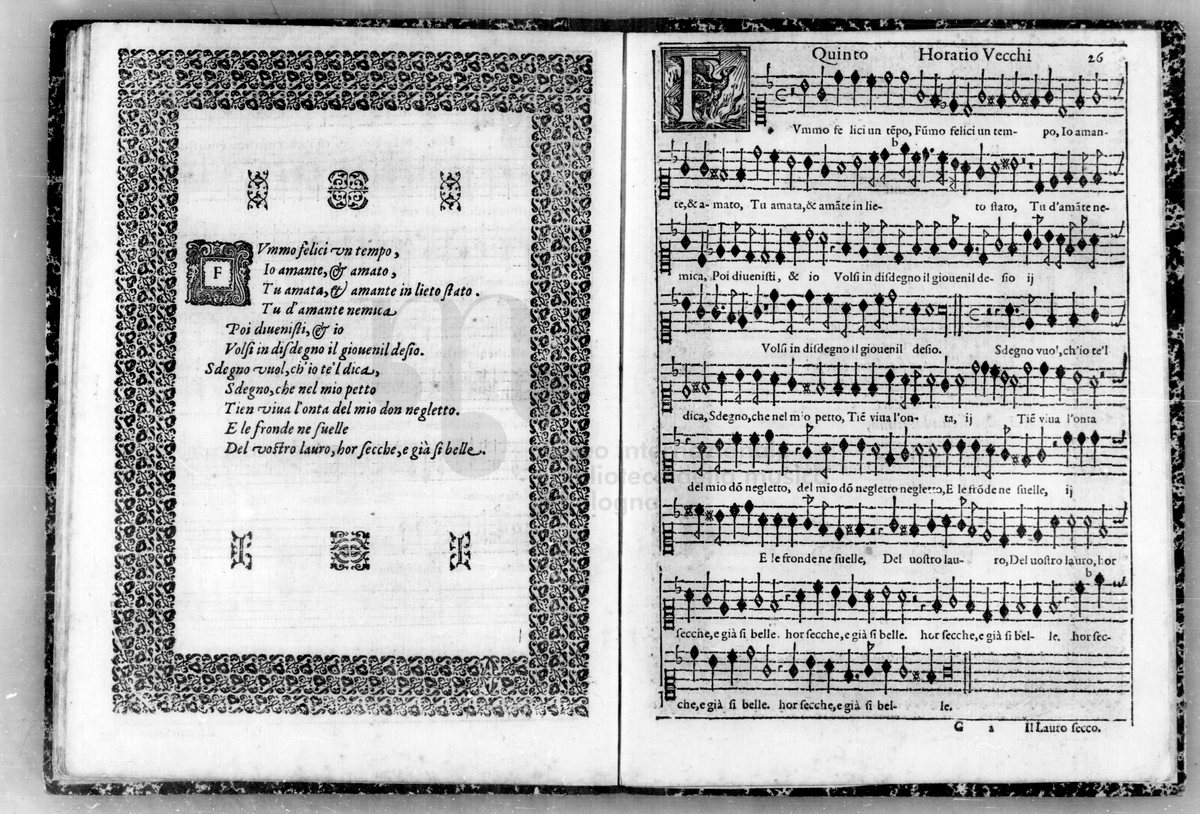 FVmmo felici vn tempo,
Io amante, & amato,
Tu amata, & amante in lieto stato.
Tu d'amante nemica
Poi diuenisti, & io
Volsi in disdegno il giouenil desio.
Sdegno vuol, ch'io te'l dica,
Sdegno, che nel mio petto
Tien viua l'onta del mio don negletto.
E le fronde ne suelle
Del vostro lauro, hor secche, e già si belle.
Quinto Horatio Vecchi 26
FVmmo fe lici un tēpo, Fūmo felici un tem- po, Io aman-
te, & a- mato, Tu amata, & amāte in lie- to stato, Tu d'amāte ne-
mica, Poi diuenisti, & io Volsi in disdegno il giouenil de- sio ij
Volsi in disdegno il giouenil desio. Sdegno vuo', ch'io te'l
dica, Sdegno, che nel mio petto, Tiē viua l'on- ta, ij Tiē viua l'onta
del mio dō negletto, del mio dō negletto negletto, E le frōde ne suelle, ij
E le fronde ne suelle, Del uostro lau- ro, Del uostro lauro, hor
secche, e già si belle. hor secche, e già si belle. hor secche, e già si bel- le. hor sec-
che, e già si belle. hor secche, e già si bel- le.
G 2 Il Lauro secco.